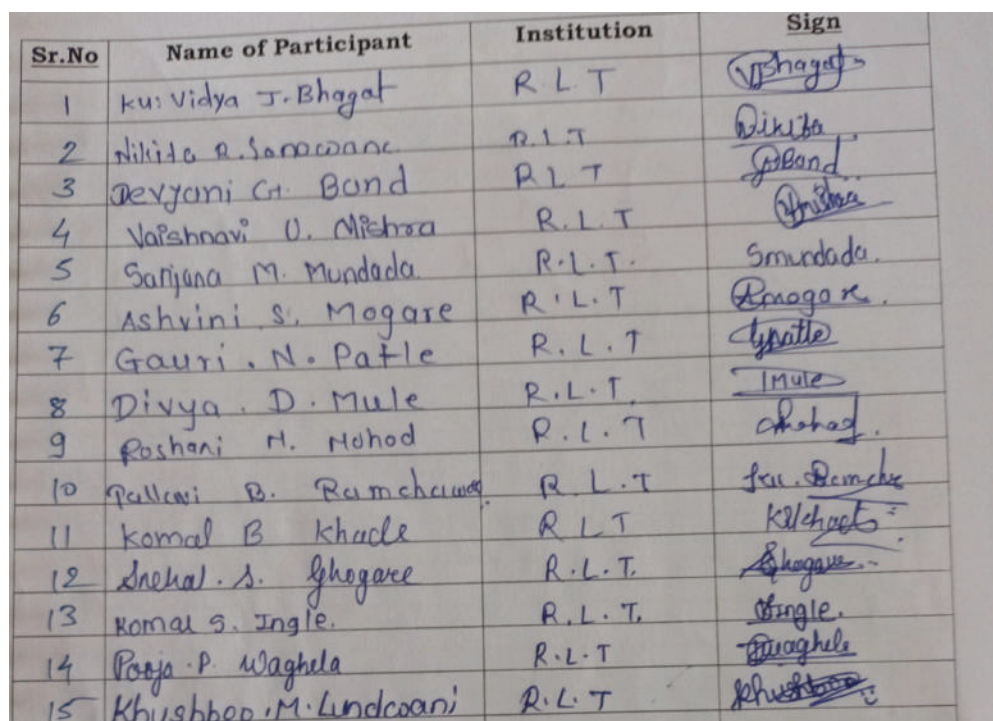 Sr.No Name of Participant Institution Sign
1 Ku. Vidya J. Bhagat R.L.T VBhagat
2 Nikita R. Sonawane R.L.T Nikita
3 Devyani G. Band R L T Band
4 Vaishnavi U. Mishra R.L.T
5 Sanjana M. Mundada R.L.T. Smundada.
6 Ashvini S. Mogare R.L.T Amogare.
7 Gauri . N. Patle R.L.T Gpatle
8 Divya . D. Mule R.L.T. Mule
9 Roshani M. Mohod R.L.T
10 Pallavi B. R.L.T
11 Komal B Khade R L T
12 Snehal . S. Ghogare R.L.T. Ghogare
13 Komal S. Ingle. R.L.T. Ingle.
14 Pooja . P. Waghela R.L.T Waghela
15 Khushboo . M. Lundwani R.L.T Khushboo